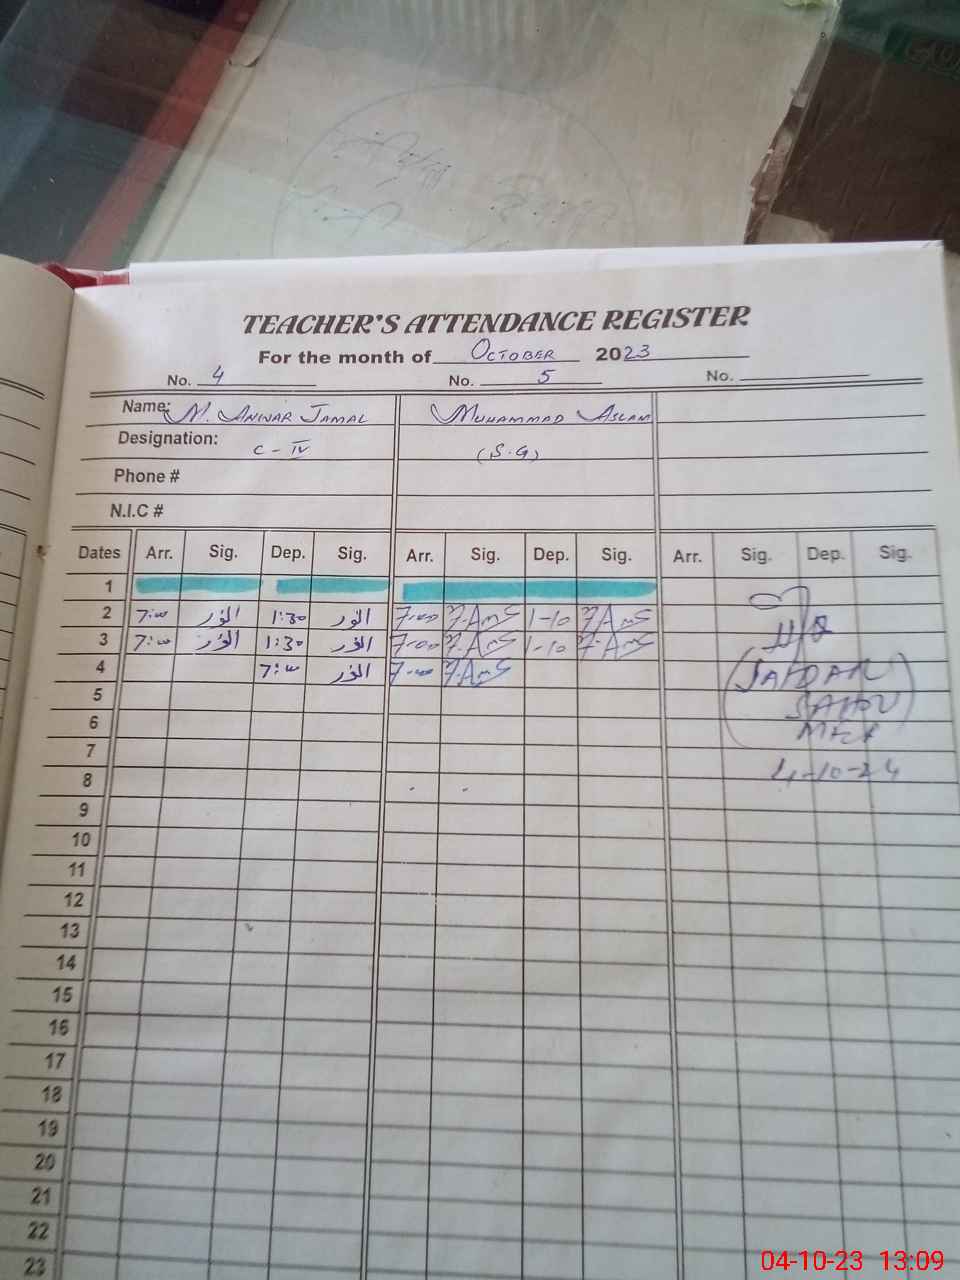 TEACHER'S ATTENDANCE REGISTER
For the month of October 2023
No. 4 No. 5 No.
Name: M. Anwar Jamal Muhammad Aslam
Designation: C-IV (S.G)
Phone #
N.I.C #
Dates Arr. Sig. Dep. Sig. Arr. Sig. Dep. Sig. Arr. Sig. Dep. Sig.
1
2 7:00 انور 1:30 انور 7-00 1-10
3 7:00 انور 1:30 انور 7-00 1-10
4 7:00 انور 7-00
5
6
7
8
9
10
11
12
13
14
15
16
17
18
19
20
21
22
23
4-10-24
04-10-23 13:09